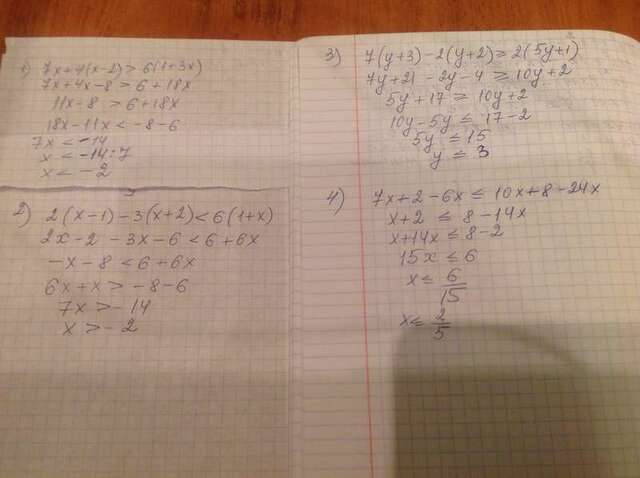 1) 7x+4(x-2)>6(1+3x)
7x+4x-8>6+18x
11x-8>6+18x
18x-11x<-8-6
7x<-14
x<-14:7
x<-2
2) 2(x-1)-3(x+2)<6(1+x)
2x-2-3x-6<6+6x
-x-8<6+6x
6x+x>-8-6
7x>-14
x>-2
3) 7(y+3)-2(y+2)≥2(5y+1)
7y+21-2y-4≥10y+2
5y+17≥10y+2
10y-5y≤17-2
5y≤15
y≤3
4) 7x+2-6x≤10x+8-24x
x+2≤8-14x
x+14x≤8-2
15x≤6
x≤6/15
x≤2/5